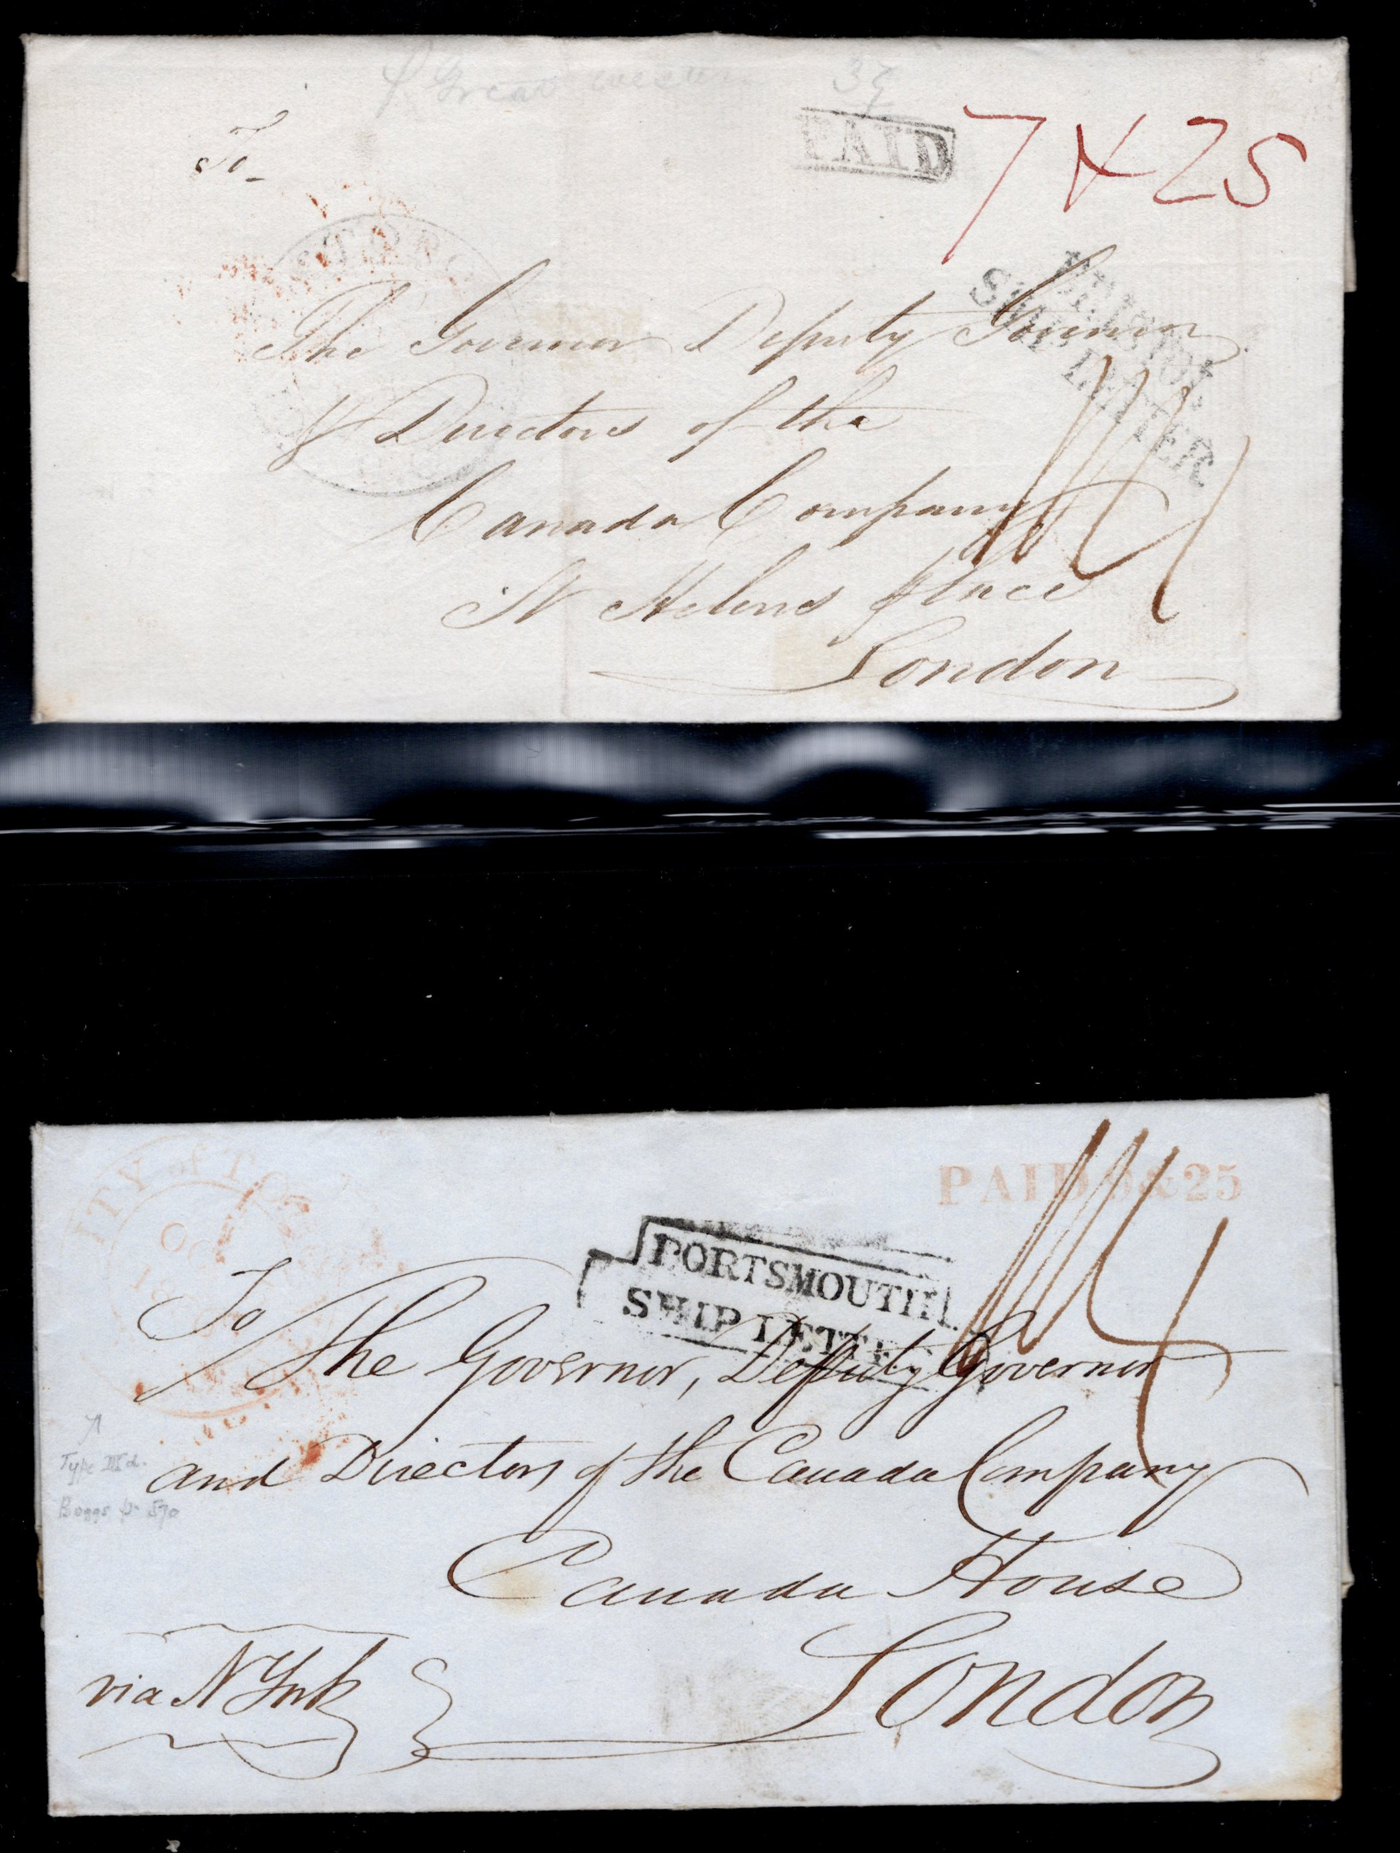 Great Western 39
PAID
7 & 25
To
TORO
BRISTOL
SHIP LETTER
The Governor Deputy Governor
& Directors of the
Canada Company
St Helens place
London
CITY of TO
PAID & 25
OC
18
PORTSMOUTH
SHIP LETTER
To
The Governor, Deputy Governor
and Directors of the Canada Company
Type III d.
Boggs p. 570
Canada House
via N York
London